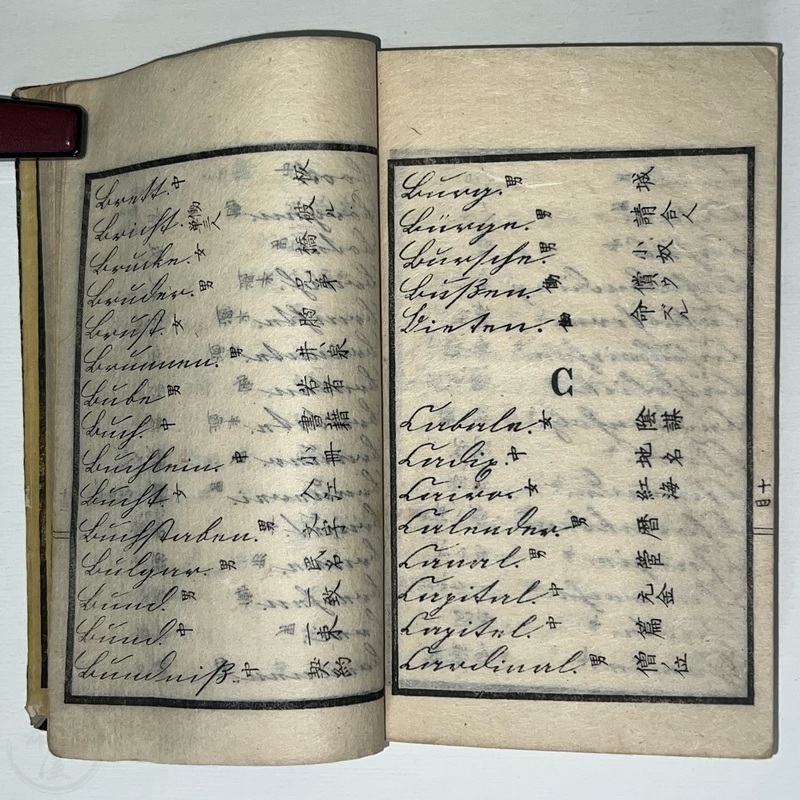 Brett. 中 板
Bricht. 働 単三人 破ル
Brücke. 女 橋
Bruder. 男 兄弟
Brust. 女 胸
Brunnen. 男 井泉
Bube 男 若者
Buch. 中 書籍
Buchlein. 中 小冊
Bucht. 女 入江
Buchstaben. 男 文字
Bulgar. 男 民名
Bund. 男 一致
Bund. 中 一束
Bündniß. 中 契約
Burg. 男 城
Bürge. 男 請合人
Bursche. 男 小奴
Bußen. 働 償ウ
Bieten. 働 命ズル
C
Cabale. 女 陰謀
Cadix. 中 地名
Cairo. 女 紅海
Calender. 男 暦
Canal. 男 管
Capital. 中 元金
Capitel. 中 篇
Cardinal. 男 僧ノ位